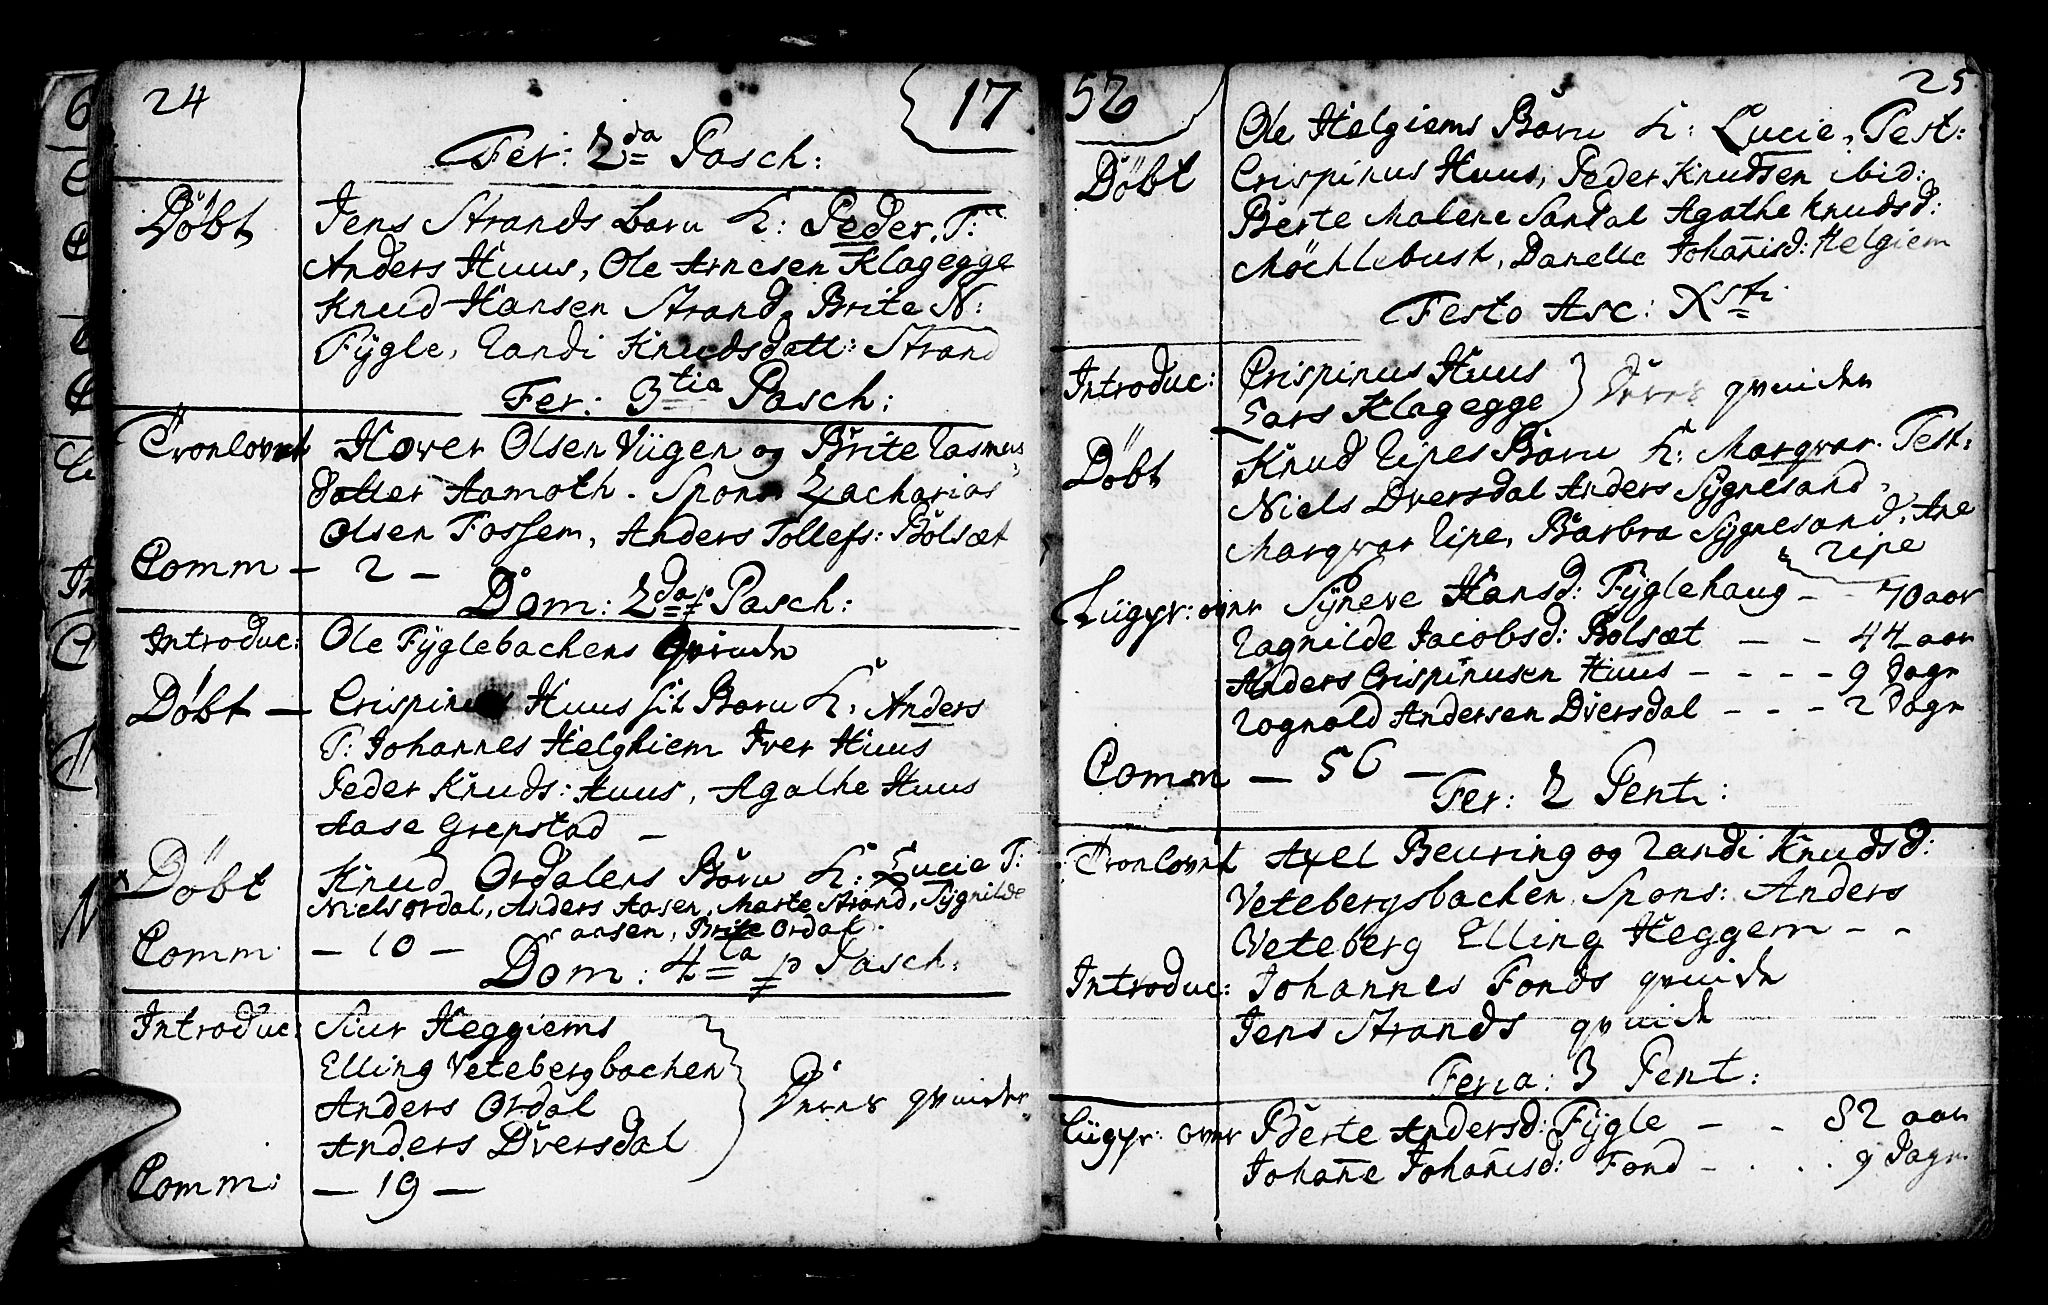 24
17
Fer: 2da Pasch:
Döbt
Jens Strands barn K: Peder. T:
Anders Huus, Ole Arnesen Klagegge
Knud Hansen Strand, Brite N:
Fÿgle, Randi Knudsdatt: Strand
Fer: 3tia Pasch:
Cronlovet
Hover Olsen Viigen og Brite Rasmus
datter Aamoth. Spons: Zacharias
Olsen Fossem, Anders Tollefs: Bolsæt
Comm – 2 –
Dom: 2da p Pasch:
Introduc:
Ole Fÿglebachens qvinde
Döbt –
Crispinus Huus sit Barn K: Anders
T: Johannes Helghiem Iver Huus
Peder Knuds: Huus, Agathe Huus
Aase Grepstad –
Döbt
Knud Ordalens Barn K: Lucie T:
Niels Ordal, Anders Aasen, Marte Strand, Sÿgnilde
Aasen, Brite Ordal.
Comm – 10 –
Dom: 4ta p Pasch:
Introduc:
Siur Heggiems
Elling Vetebergbachen
Anders Ordal
Anders Dversdal
Deres qvinder
Comm: – 19 –
52
25
Döbt
Ole Helgiems Barn K: Lucie, Test:
Crispinus Huus, Peder Knudsen ibid:
Berte Malene Sandal Agathe Knudsd:
Möchlebust, Danelle Johan̄isd: Helgiem
Festo Asc: Xsti
Introduc:
Crispinus Huus
Lars Klagegge
Deres qvinder
Döbt
Knud Ripes Barn K: Margvar. Test:
Niels Dversdal Anders Sÿgnesand,
Margvar Ripe, Barbra Sÿgnesand, Ane
Ripe
Liigpr: over
Sÿneve Hansd: Fÿglehaug – – 70 aar
Ragnilde Jacobsd: Bolsæt – – 44 aar
Anders Crispinusen Huus – – – – 9 Dage
Rognald Andersen Dversdal – – – 2 Dage
Comm – 56 –
Fer: 2 Pent:
Cronlovet
Axel Beuring og Randi Knudsd:
Vetebergsbachen Spons: Anders
Veteberg Elling Heggem – –
Introduc:
Johannes Fonds qvinde
Jens Strands qvinde
Feria: 3 Pent:
Liigpr: over
Berte Andersd: Fÿgle – – 82 aar
Johan̄e Johan̄isd: Fond – . . . 9 Dage